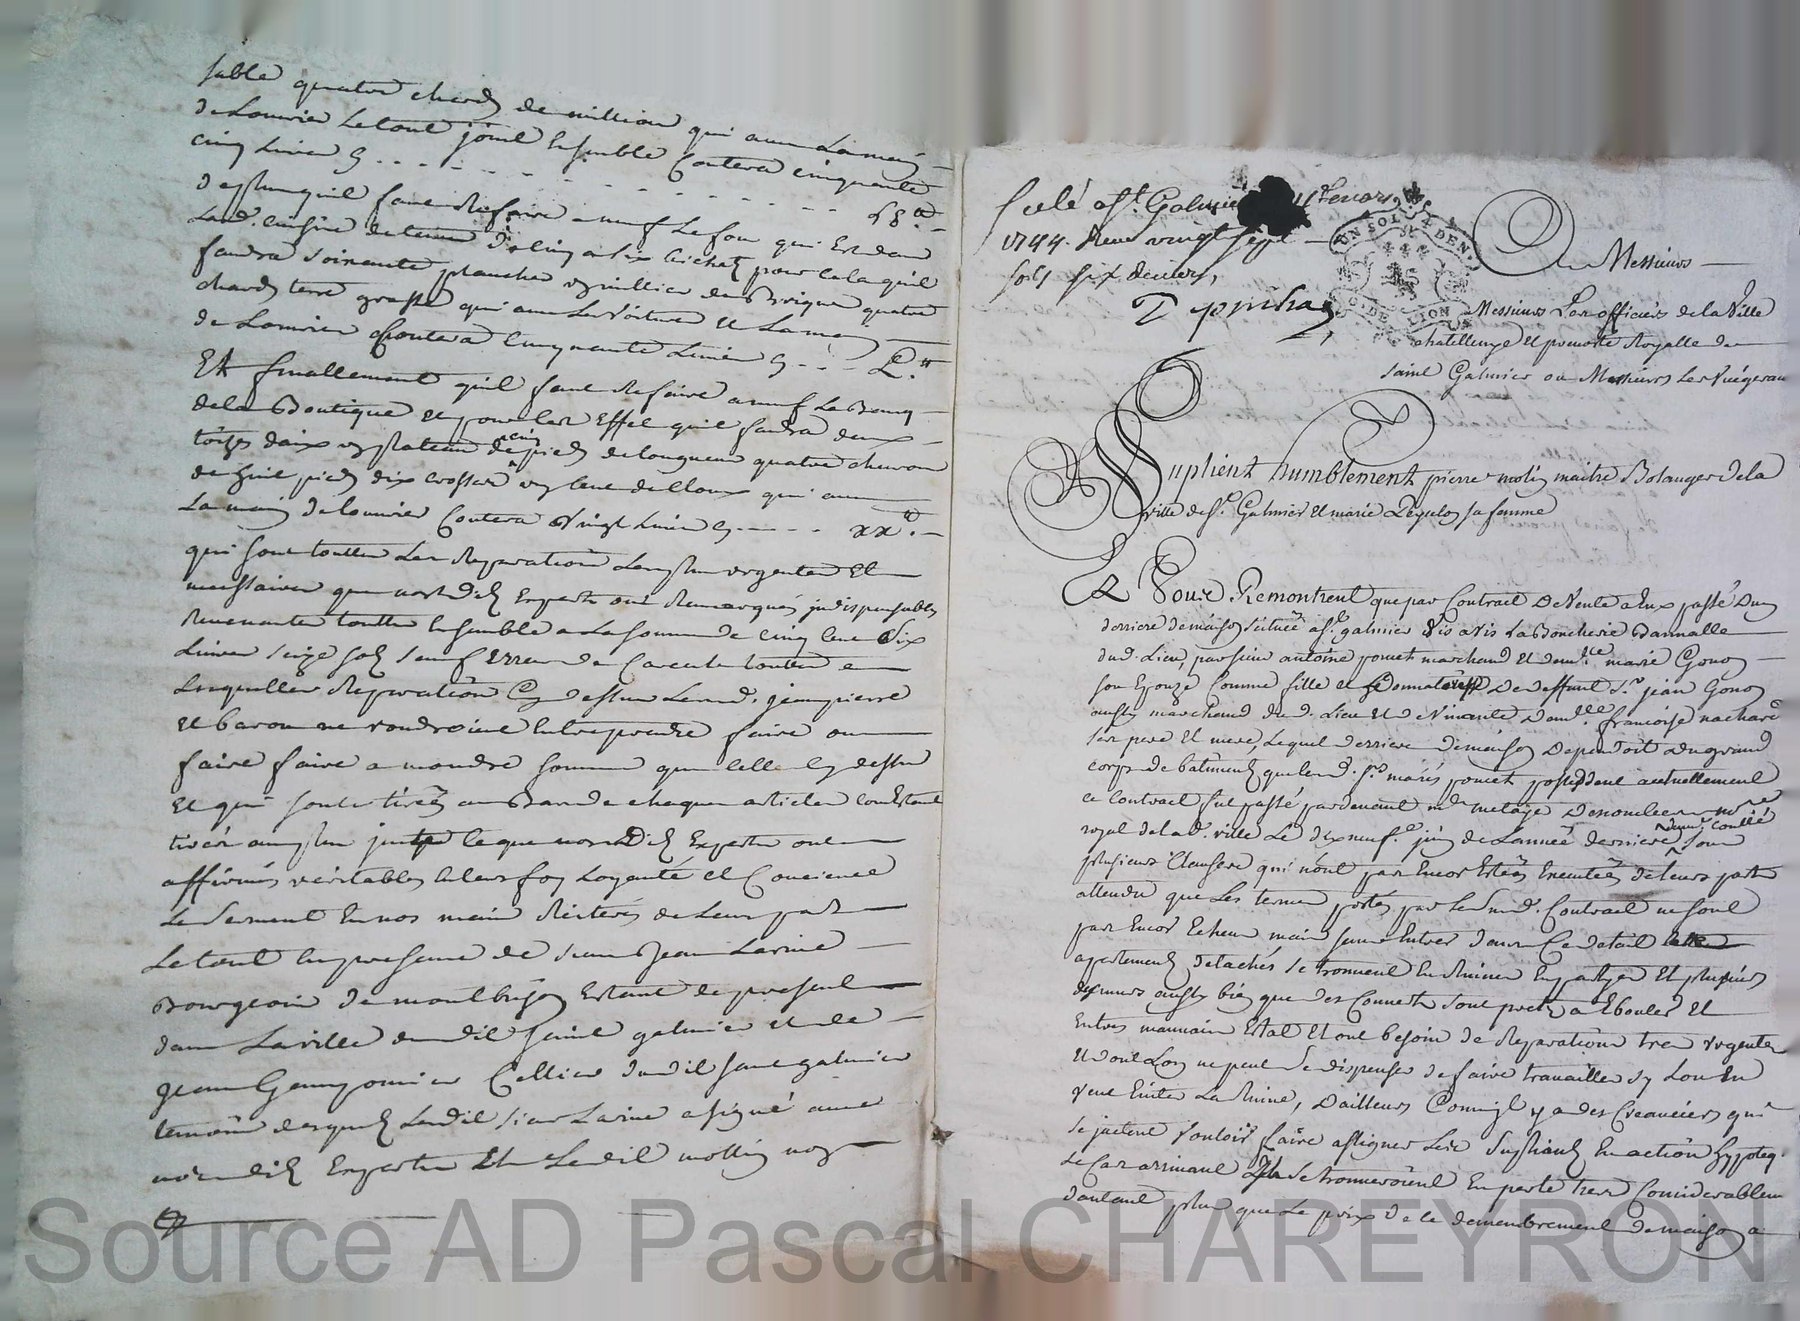 sable quatre chards de million qui avec La main
de Louvrier Le tout joint Ensemble Coutera cinquante
cinq Livres
de plus quil faut Refaire a neuf Le four qui Est dans
Lad. cuisine de tenue de cinq a six bichets pour cela quil
faudra soixante planches un millier de Brique quatre
chards terre grasse qui avec La Voiture et La main
de Louvrier Coutera Cinquante Livres L.tt
Et finallement quil faut Refaire a neuf Le Banq
de la Boutique et pour Cest Effet quil faudra deux
toizes daix un plateau de pieds de longueur quatre chevron
de huit pieds dix crossiere un cent de Cloux qui avec
La main de louvrier Coutera Vingt Livres xx.tt
qui sont touttes Les Reparations Les plus urgentes Et
necessaires que nosd. Experts ont Remarqués jndispensables
Revenante touttes Ensemble a La somme de cinq cent dix
Livres seize sols sauf Erreur de Carcul touttes
Lesquelles Reparations Cy dessus Lesd. jeanpierre
et baron ne voudroient Entreprendre faire ou
faire faire a moindre somme que celle Cy dessus
et qui sont tirées au Bas de chaque article
tirer au plus juste Ce que nosdits Experts ont
affirmés veritables En leur foy Loyauté et Concience
Le Serment En nos mains Réiterés de Leur part
Le tout En presence de sieur Jean Larive
Bourgeois de montbrison Estant de present
dans La ville dudit saint galmier et de
jean Gemponier Cellier dudit saint galmier
temoins desquels Ledit sieur Larive a signé avec
nosdits Experts Et Ledit mollin non
Scelé a St. Galmier
1744. Reçu vingt sept
sols six deniers,
UN SOL 4 DEN
G. DE LION
A Messieurs
Messieurs Les officiers de la Ville
chatellenye et prevosté Royalle de
saint Galmier ou Messieurs Les Vicegerau
Suplient humblement pierre molin maitre Bolanger de la
ville de St. Galmier et marie Depulon sa femme
Et Vous Remontrent que par Contrat De Vente a Eux passé dun
derriere de maison scituée a St. galmier Vis a Vis La Boucherie Bannalle
dud. Lieu, par sieur antoine poncet marchand et demlle marie Gonon
son Epouze Comme fille et donnataire De deffunt Sr. jean Gonon
aussy marchand dud. Lieu et de Vivante Demlle françoise nachard
ses pere Et mere, Lequel derriere de maison Dependoit du grand
corps de batiments que lesd. Srs. mariés poncet possedent actuellement
ce Contrat fut passé pardevant me metaje Denombre nre
royal de lad. ville Le dixneufe. juin de Lannée derniere sous
plusieurs Clausere qui n'ont pas Encor Estées Executées de leurs part
attendu que Les termes portés par Le susd. Contrat ne sont
pas Encor Echeus mais comme Entrés dans Ce detail
apartements detachés se trouvent En Ruines En partye Et plusieurs
des murs aussy bien que des Couverts sont prets a Ebouler Et
Entres mauvais Estat Et ont besoin de Reparations tres Urgentes
Et dont Lon ne peut se dispenser de faire travailler sy Lon En
Veut Eviter La Ruine, D'ailleurs Comme jl y a des Creanciers qui
se jactent Vouloir faire assigner Les Supliants En action hypoteq.
Le Cas arrivant ils se trouveroient En perte tres Considerablem
dautant plus que Le prix de ce demembrement de maison a
Source AD Pascal CHAREYRON